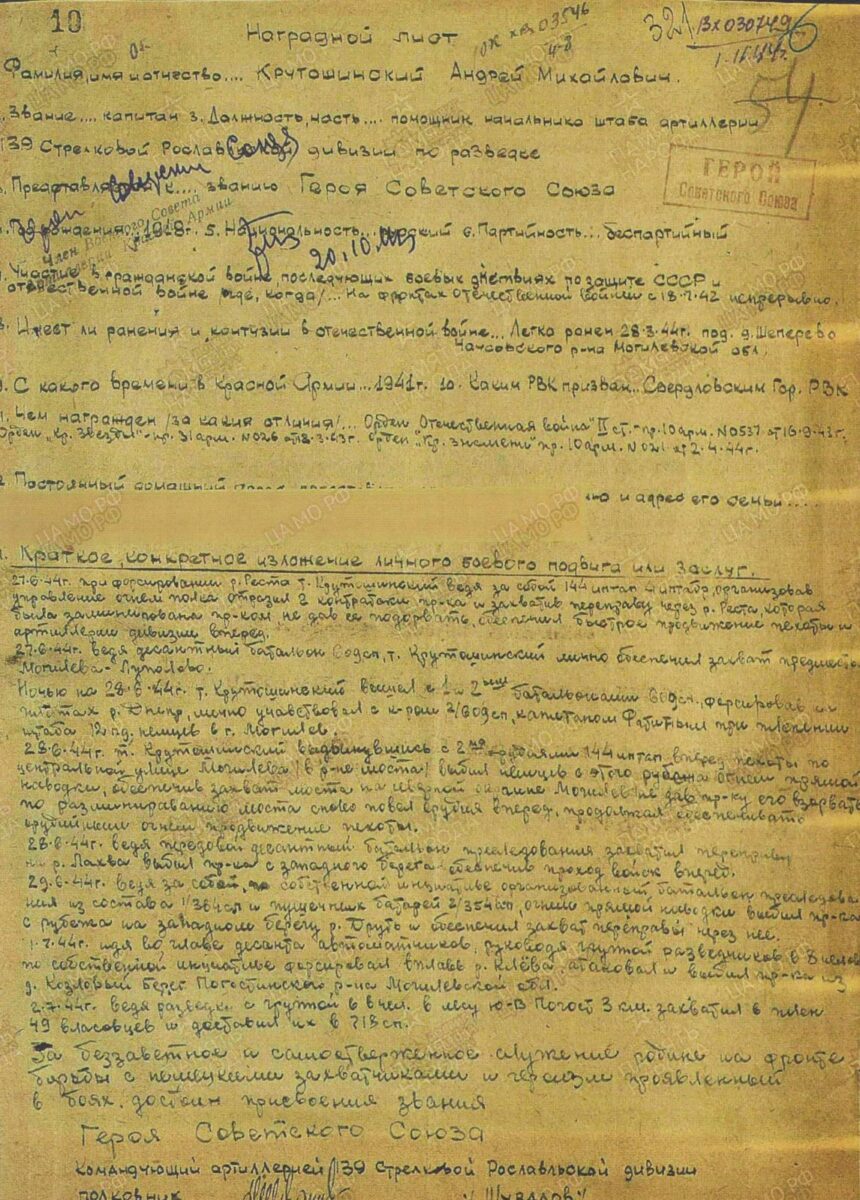 10
Наградной лист
32
Вх 030749
54
Фамилия, имя и отчество.... Крутошинский Андрей Михайлович.
Звание.... капитан 3. Должность, часть.... помощник начальника штаба артиллерии
139 Стрелковой Рославльской дивизии по разведке
ГЕРОЙ
Советского Союза
Представляется к.... званию Героя Советского Союза
Член Военного Совета
Год рождения 1918г. 5. Национальность... 6. Партийность... беспартийный
20.10
Участие в гражданской войне, последующих боевых действиях по защите СССР и
отечественной войне /где, когда/... На фронтах отечественной войны с 18.7.42 непрерывно.
Имеет ли ранения и контузии в отечественной войне... Легко ранен 28.3.44г. под. д. Шеперево
Чаусовского р-на Могилевской обл.
С какого времени в Красной Армии... 1941г. 10. Каким РВК призван.. Свердловским Гор. РВК
Чем награжден /за какия отличия/... Орден "Отечественная война" II ст.-пр. 10 арм. N0537 от 16.9.43г.
Орден "Кр. Звезды"-пр. 31 арм. N026 от 8.3.43г. Орден "Кр. Знамени" пр. 10 арм. N021 от 2.4.44г.
Постоянный домашний и адрес его семьи....
Краткое, конкретное изложение личного боевого подвига или заслуг.
27.6.44г. при форсировании р. Реста т. Крутошинский ведя за собой 144 иптап организовав
управление огнем полка отразил 2 контратаки пр-ка и захватив переправу через р. Реста, которая
была заминирована пр-ком не дав ее подорвать, обеспечил быстрое продвижение пехоты и
артиллерии дивизии вперед.
27.6.44г. ведя десантный батальон 609сп, т. Крутошинский лично обеспечил захват предмостья
Могилева-Луполово.
Ночью на 28.6.44г. т. Крутошинский вышел с 1 и 2 батальонами 609сп, форсировав
р. Днепр, лично учавствовал с к-ром 2/609сп, капитаном при пленении
штаба 12 пд. немцев в г. Могилев.
28.6.44г. т. Крутошинский выдвинувшись с 2 орудиями 144 иптап вперед пехоты по
центральной улице Могилева /в р-не моста/ выбил немцев с этого рубежа огнем прямой
наводки, обеспечив захват моста на Могилев не дав пр-ку его взорвать
по разминированию моста снова повел орудия вперед, продолжая обеспечивать
орудийным огнем продвижение пехоты.
28.6.44г. ведя передовой десантный батальон преследования захватил переправу
на р. Лахва выбил пр-ка с западного берега обеспечив проход войск вперед.
29.6.44г. ведя за собой, по собственной инициативе организованный батальон преследова-
ния из состава 1/364сп и пушечных батарей 2/354ап, огнем прямой наводки выбил пр-ка
с рубежа на западном берегу р. Друть и обеспечил захват переправы через нее.
1.7.44г. идя во главе десанта автоматчиков, руководя группой разведчиков в 8 человек
по собственной инициативе форсировал вплавь р. Клёва, атаковал и выбил пр-ка из
д. Козловый берег Погостинского р-на Могилевской обл.
2.7.44г. ведя разведку с группой 6 чел. в лесу ю-В Погост 3 км. захватил в плен
49 власовцев и доставил их в 718сп.
За беззаветное и самоотверженное служение родине на фронте
борьбы с немецкими захватчиками и героизм проявленный
в боях, достоин присвоения звания
Героя Советского Союза
Командующий артиллерией 139 Стрелковой Рославльской дивизии
полковник /Шувалов/